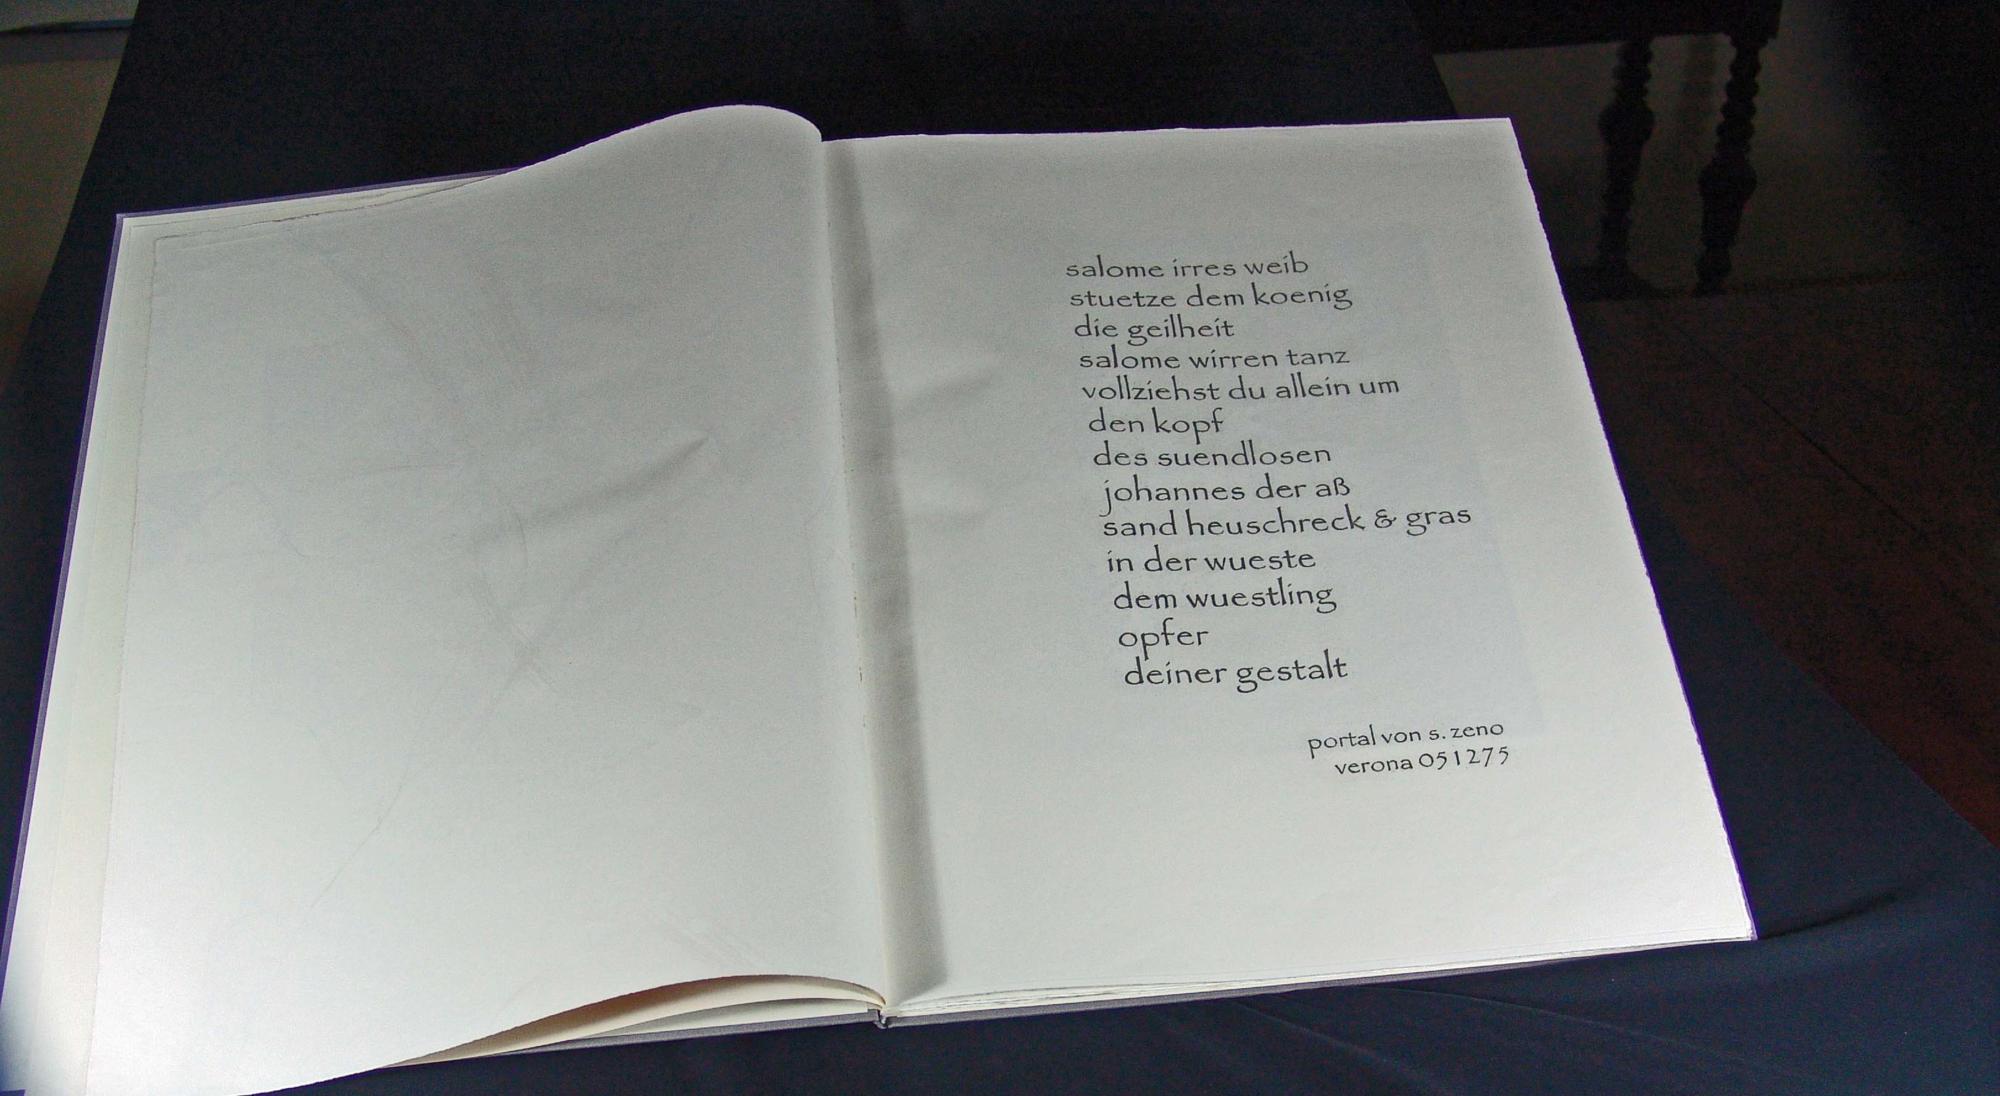 salome irres weib
stuetze dem koenig
die geilheit
salome wirren tanz
vollziehst du allein um
den kopf
des suendlosen
johannes der aß
sand heuschreck & gras
in der wueste
dem wuestling
opfer
deiner gestalt
portal von s. zeno
verona 051275